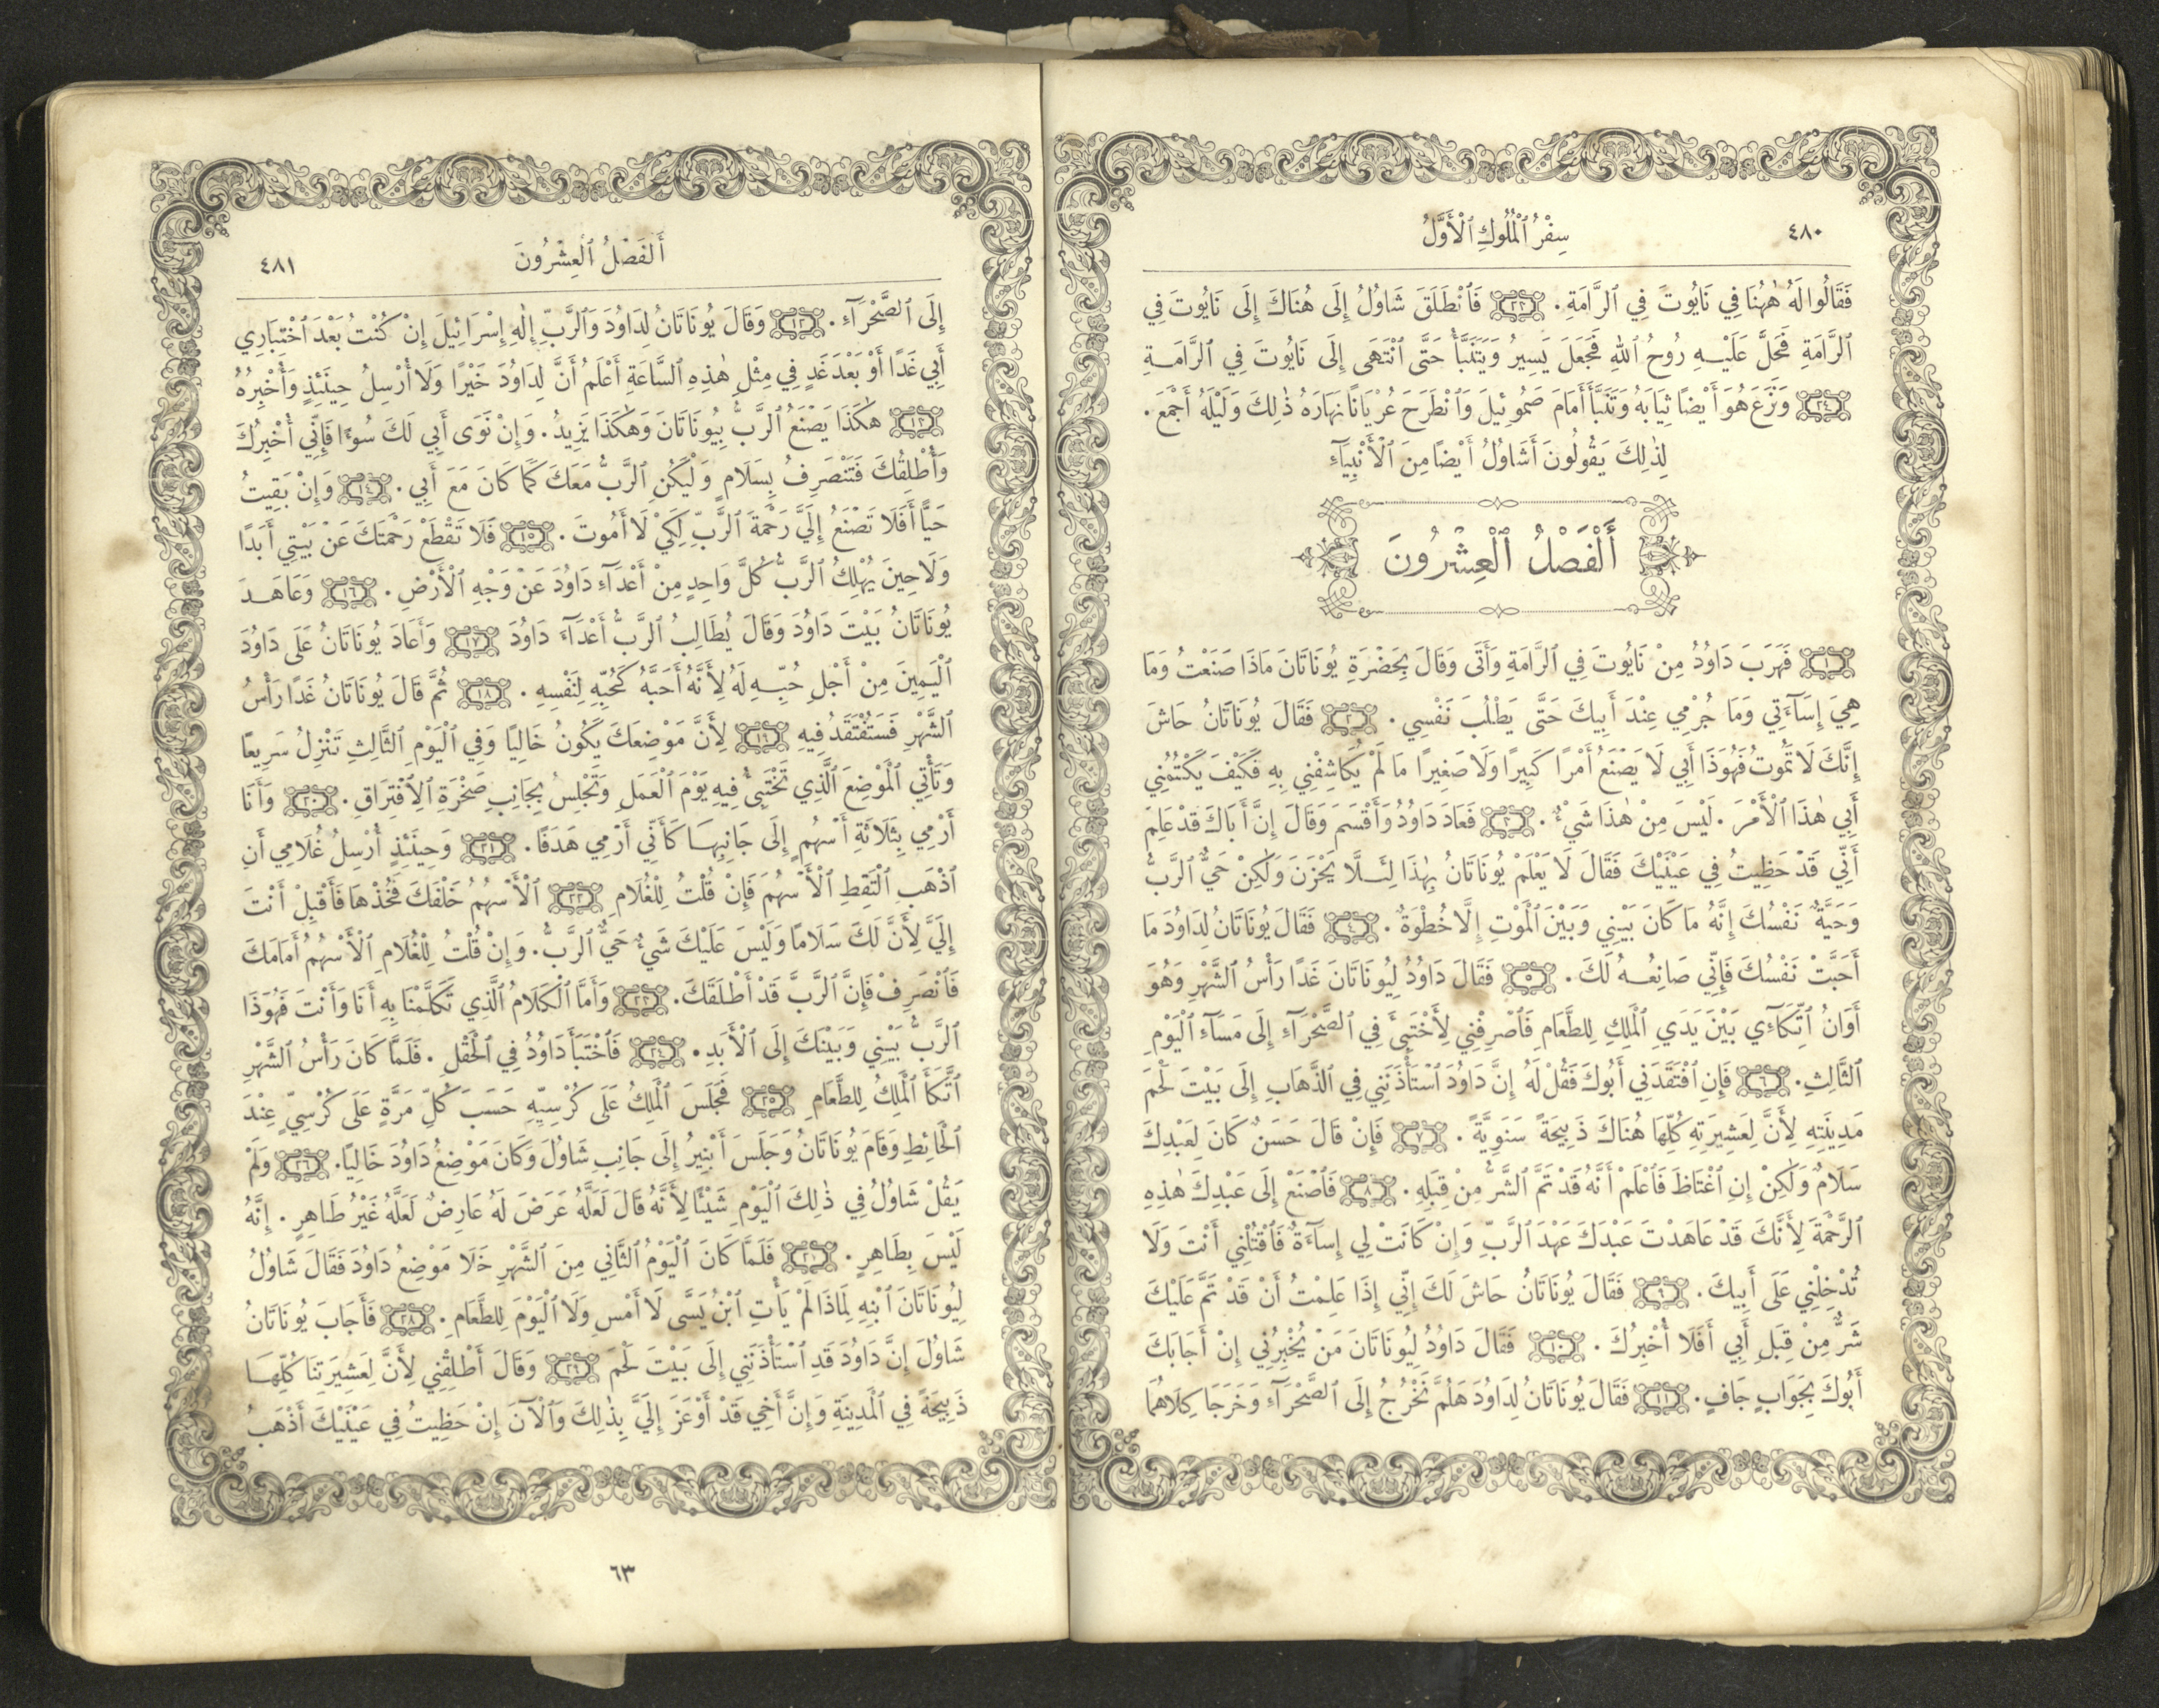 ٤٨٠
سِفْرُ ٱلْمُلُوكِ ٱلْأَوَّلُ
فَقَالُوا لَهُ هٰهُنَا فِي نَايُوتَ فِي ٱلرَّامَةِ. ٢٣ فَٱنْطَلَقَ شَاوُلُ إِلَى هُنَاكَ إِلَى نَايُوتَ فِي
ٱلرَّامَةِ فَحَلَّ عَلَيْهِ رُوحُ ٱللهِ فَجَعَلَ يَسِيرُ وَيَتَنَبَّأُ حَتَّى ٱنْتَهَى إِلَى نَايُوتَ فِي ٱلرَّامَةِ
٢٤ وَنَزَعَ هُوَ أَيْضًا ثِيَابَهُ وَتَنَبَّأَ أَمَامَ صَمُوئِيلَ وَٱنْطَرَحَ عُرْيَانًا نَهَارَهُ ذٰلِكَ وَلَيْلَهُ أَجْمَعَ.
لِذٰلِكَ يَقُولُونَ أَشَاوُلُ أَيْضًا مِنَ ٱلْأَنْبِيَآءِ
أَلْفَصْلُ ٱلْعِشْرُونَ
١ فَهَرَبَ دَاوُدُ مِنْ نَايُوتَ فِي ٱلرَّامَةِ وَأَتَى وَقَالَ بِحَضْرَةِ يُونَاتَانَ مَاذَا صَنَعْتُ وَمَا
هِيَ إِسَآءَتِي وَمَا جُرْمِي عِنْدَ أَبِيكَ حَتَّى يَطْلُبَ نَفْسِي. ٢ فَقَالَ يُونَاتَانُ حَاشَ
إِنَّكَ لَا تَمُوتُ فَهُوَذَا أَبِي لَا يَصْنَعُ أَمْرًا كَبِيرًا وَلَا صَغِيرًا مَا لَمْ يُكَاشِفْنِي بِهِ فَكَيْفَ يَكْتُمُنِي
أَبِي هٰذَا ٱلْأَمْرَ. لَيْسَ مِنْ هٰذَا شَيْءٌ. ٣ فَعَادَ دَاوُدُ وَأَقْسَمَ وَقَالَ إِنَّ أَبَاكَ قَدْ عَلِمَ
أَنِّي قَدْ حَظِيتُ فِي عَيْنَيْكَ فَقَالَ لَا يَعْلَمْ يُونَاتَانُ بِهٰذَا لِئَلَّا يَحْزَنَ وَلٰكِنْ حَيٌّ ٱلرَّبُّ
وَحَيَّةٌ نَفْسُكَ إِنَّهُ مَا كَانَ بَيْنِي وَبَيْنَ ٱلْمَوْتِ إِلَّا خُطْوَةٌ. ٤ فَقَالَ يُونَاتَانُ لِدَاوُدَ مَا
أَحَبَّتْ نَفْسُكَ فَإِنِّي صَانِعُهُ لَكَ. ٥ فَقَالَ دَاوُدُ لِيُونَاتَانَ غَدًا رَأْسُ ٱلشَّهْرِ وَهُوَ
أَوَانُ ٱتِّكَآءِي بَيْنَ يَدَيِ ٱلْمَلِكِ لِلطَّعَامِ فَٱصْرِفْنِي لِأَخْتَبِئَ فِي ٱلصَّحْرَآءِ إِلَى مَسَآءِ ٱلْيَوْمِ
ٱلثَّالِثِ. ٦ فَإِنِ ٱفْتَقَدَنِي أَبُوكَ فَقُلْ لَهُ إِنَّ دَاوُدَ ٱسْتَأْذَنَنِي فِي ٱلذَّهَابِ إِلَى بَيْتَ لَحْمَ
مَدِينَتِهِ لِأَنَّ لِعَشِيرَتِهِ كُلِّهَا هُنَاكَ ذَبِيحَةً سَنَوِيَّةً. ٧ فَإِنْ قَالَ حَسَنٌ كَانَ لِعَبْدِكَ
سَلَامٌ وَلٰكِنْ إِنِ ٱغْتَاظَ فَٱعْلَمْ أَنَّهُ قَدْ تَمَّ ٱلشَّرُّ مِنْ قِبَلِهِ. ٨ فَٱصْنَعْ إِلَى عَبْدِكَ هٰذِهِ
ٱلرَّحْمَةَ لِأَنَّكَ قَدْ عَاهَدْتَ عَبْدَكَ عَهْدَ ٱلرَّبِّ وَإِنْ كَانَتْ لِي إِسَآءَةٌ فَٱقْتُلْنِي أَنْتَ وَلَا
تُدْخِلْنِي عَلَى أَبِيكَ. ٩ فَقَالَ يُونَاتَانُ حَاشَ لَكَ إِنِّي إِذَا عَلِمْتُ أَنْ قَدْ تَمَّ عَلَيْكَ
شَرٌّ مِنْ قِبَلِ أَبِي أَفَلَا أُخْبِرُكَ. ١٠ فَقَالَ دَاوُدُ لِيُونَاتَانَ مَنْ يُخْبِرُنِي إِنْ أَجَابَكَ
أَبُوكَ بِجَوَابٍ جَافٍ. ١١ فَقَالَ يُونَاتَانُ لِدَاوُدَ هَلُمَّ نَخْرُجُ إِلَى ٱلصَّحْرَآءِ وَخَرَجَا كِلَاهُمَا
أَلْفَصْلُ ٱلْعِشْرُونَ
٤٨١
إِلَى ٱلصَّحْرَآءِ. ١٢ وَقَالَ يُونَاتَانُ لِدَاوُدَ وَٱلرَّبِّ إِلٰهِ إِسْرَائِيلَ إِنْ كُنْتُ بَعْدَ ٱخْتِبَارِي
أَبِي غَدًا أَوْ بَعْدَ غَدٍ فِي مِثْلِ هٰذِهِ ٱلسَّاعَةِ أَعْلَمُ أَنَّ لِدَاوُدَ خَيْرًا وَلَا أُرْسِلُ حِينَئِذٍ وَأُخْبِرُهُ
١٣ هٰكَذَا يَصْنَعُ ٱلرَّبُّ بِيُونَاتَانَ وَهٰكَذَا يَزِيدُ. وَإِنْ نَوَى أَبِي لَكَ سُوءًا فَإِنِّي أُخْبِرُكَ
وَأُطْلِقُكَ فَتَنْصَرِفُ بِسَلَامٍ وَلْيَكُنِ ٱلرَّبُّ مَعَكَ كَمَا كَانَ مَعَ أَبِي. ١٤ وَإِنْ بَقِيتُ
حَيًّا أَفَلَا تَصْنَعُ إِلَيَّ رَحْمَةَ ٱلرَّبِّ لِكَيْ لَا أَمُوتَ. ١٥ فَلَا تَقْطَعْ رَحْمَتَكَ عَنْ بَيْتِي أَبَدًا
وَلَا حِينَ يُهْلِكُ ٱلرَّبُّ كُلَّ وَاحِدٍ مِنْ أَعْدَآءِ دَاوُدَ عَنْ وَجْهِ ٱلْأَرْضِ. ١٦ وَعَاهَدَ
يُونَاتَانُ بَيْتَ دَاوُدَ وَقَالَ يُطَالِبُ ٱلرَّبُّ أَعْدَآءَ دَاوُدَ ١٧ وَأَعَادَ يُونَاتَانُ عَلَى دَاوُدَ
ٱلْيَمِينَ مِنْ أَجْلِ حُبِّهِ لَهُ لِأَنَّهُ أَحَبَّهُ كَحُبِّهِ لِنَفْسِهِ. ١٨ ثُمَّ قَالَ يُونَاتَانُ غَدًا رَأْسُ
ٱلشَّهْرِ فَسَتُفْتَقَدُ فِيهِ ١٩ لِأَنَّ مَوْضِعَكَ يَكُونُ خَالِيًا وَفِي ٱلْيَوْمِ ٱلثَّالِثِ تَنْزِلُ سَرِيعًا
وَتَأْتِي ٱلْمَوْضِعَ ٱلَّذِي تَخْتَبِئُ فِيهِ يَوْمَ ٱلْعَمَلِ وَتَجْلِسُ بِجَانِبِ صَخْرَةِ ٱلِٱفْتِرَاقِ. ٢٠ وَأَنَا
أَرْمِي بِثَلَاثَةِ أَسْهُمٍ إِلَى جَانِبِهَا كَأَنِّي أَرْمِي هَدَفًا. ٢١ وَحِينَئِذٍ أُرْسِلُ غُلَامِي أَنِ
ٱذْهَبِ ٱلْتَقِطِ ٱلْأَسْهُمَ فَإِنْ قُلْتُ لِلْغُلَامِ ٢٢ ٱلْأَسْهُمُ خَلْفَكَ فَخُذْهَا فَأَقْبِلْ أَنْتَ
إِلَيَّ لِأَنَّ لَكَ سَلَامًا وَلَيْسَ عَلَيْكَ شَيْءٌ حَيٌّ ٱلرَّبُّ. وَإِنْ قُلْتُ لِلْغُلَامِ ٱلْأَسْهُمُ أَمَامَكَ
فَٱنْصَرِفْ فَإِنَّ ٱلرَّبَّ قَدْ أَطْلَقَكَ. ٢٣ وَأَمَّا ٱلْكَلَامُ ٱلَّذِي تَكَلَّمْنَا بِهِ أَنَا وَأَنْتَ فَهُوَذَا
ٱلرَّبُّ بَيْنِي وَبَيْنَكَ إِلَى ٱلْأَبَدِ. ٢٤ فَٱخْتَبَأَ دَاوُدُ فِي ٱلْحَقْلِ. فَلَمَّا كَانَ رَأْسُ ٱلشَّهْرِ
ٱتَّكَأَ ٱلْمَلِكُ لِلطَّعَامِ ٢٥ فَجَلَسَ ٱلْمَلِكُ عَلَى كُرْسِيِّهِ حَسَبَ كُلِّ مَرَّةٍ عَلَى كُرْسِيٍّ عِنْدَ
ٱلْحَائِطِ وَقَامَ يُونَاتَانُ وَجَلَسَ أَبْنِيرُ إِلَى جَانِبِ شَاوُلَ وَكَانَ مَوْضِعُ دَاوُدَ خَالِيًا. ٢٦ وَلَمْ
يَقُلْ شَاوُلُ فِي ذٰلِكَ ٱلْيَوْمِ شَيْئًا لِأَنَّهُ قَالَ لَعَلَّهُ عَرَضَ لَهُ عَارِضٌ لَعَلَّهُ غَيْرُ طَاهِرٍ. إِنَّهُ
لَيْسَ بِطَاهِرٍ. ٢٧ فَلَمَّا كَانَ ٱلْيَوْمُ ٱلثَّانِي مِنَ ٱلشَّهْرِ خَلَا مَوْضِعُ دَاوُدَ فَقَالَ شَاوُلُ
لِيُونَاتَانَ ٱبْنِهِ لِمَاذَا لَمْ يَأْتِ ٱبْنُ يَسَّى لَا أَمْسِ وَلَا ٱلْيَوْمَ لِلطَّعَامِ. ٢٨ فَأَجَابَ يُونَاتَانُ
شَاوُلَ إِنَّ دَاوُدَ قَدِ ٱسْتَأْذَنَنِي إِلَى بَيْتَ لَحْمَ ٢٩ وَقَالَ أَطْلِقْنِي لِأَنَّ لِعَشِيرَتِنَا كُلِّهَا
ذَبِيحَةً فِي ٱلْمَدِينَةِ وَإِنَّ أَخِي قَدْ أَوْعَزَ إِلَيَّ بِذٰلِكَ وَٱلْآنَ إِنْ حَظِيتُ فِي عَيْنَيْكَ أَذْهَبُ
٦٣